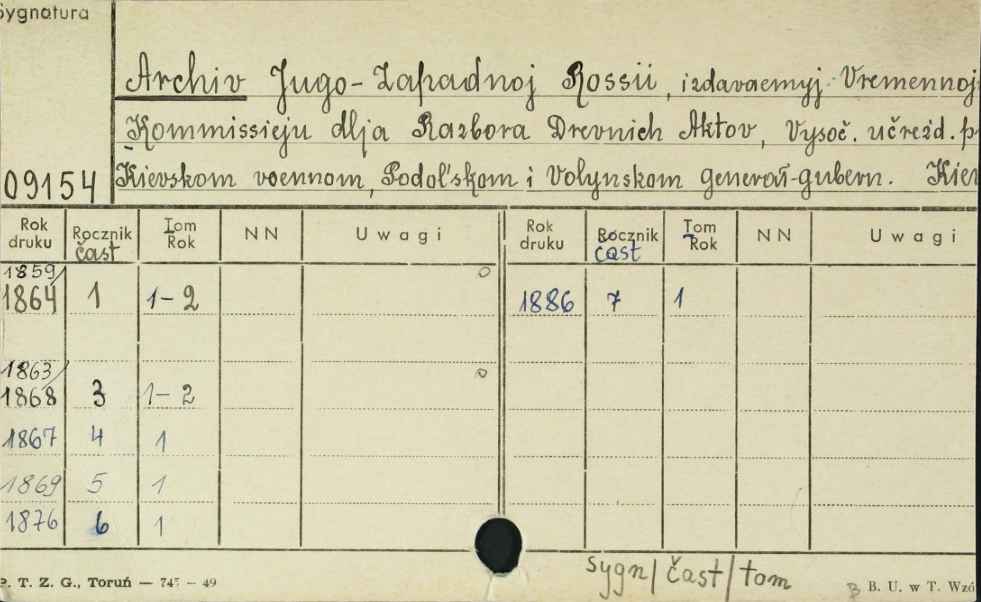 Sygnatura
Archiv Jugo-Zapadnoj Rossii, izdavaemyj Vremennoj
Kommissieju dlja Razbora Drevnich Aktov, Vysoč. učrežd. p
09154 Kievskom voennom, Podol'skom i Volynskom general-gubern. Kiev
Rok druku Rocznik Tom Rok NN Uwagi Rok druku Rocznik Tom Rok NN Uwagi
čast čast
1859/
1864 1 1-2 1886 7 1
1863/
1868 3 1-2
1867 4 1
1869 5 1
1876 6 1
sygn/čast/tom
P. T. Z. G., Toruń — 745 — 49 B. U. w T. Wzó